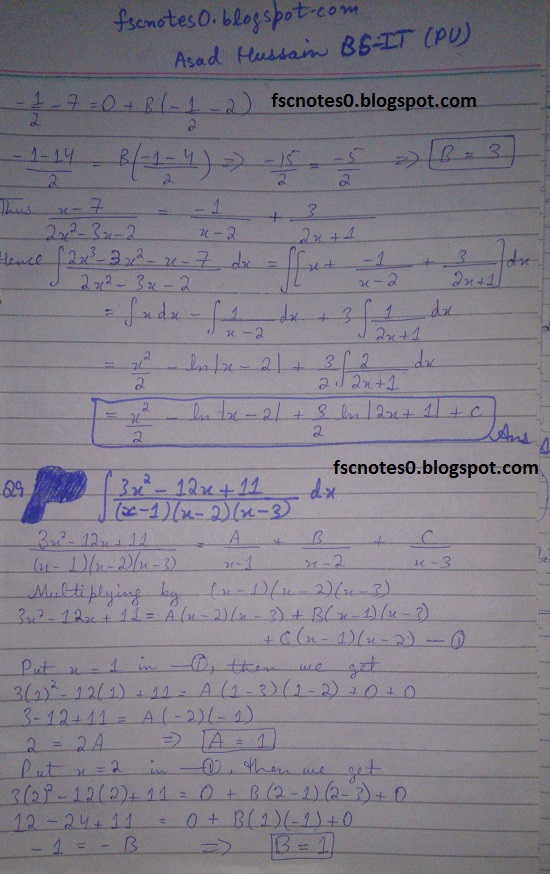 fscnotes0.blogspot.com
Asad Hussain BS-IT (PU)
-1/2 - 7 = 0 + B(-1/2 - 2)
fscnotes0.blogspot.com
(-1-14)/2 = B((-1-4)/2) => -15/2 = -5/2 => B = 3
Thus (x-7)/(2x²-3x-2) = -1/(x-2) + 3/(2x+1)
Hence ∫ (2x³-3x²-x-7)/(2x²-3x-2) dx = ∫[x + -1/(x-2) + 3/(2x+1)] dx
= ∫x dx - ∫ 1/(x-2) dx + 3∫ 1/(2x+1)
= x²/2 - ln|x-2| + 3/2 ∫ 2/(2x+1) dx
= x²/2 - ln|x-2| + 3/2 ln|2x+1| + c
Ans
fscnotes0.blogspot.com
Q29 ∫ (3x²-12x+11)/((x-1)(x-2)(x-3)) dx
(3x²-12x+11)/((x-1)(x-2)(x-3)) = A/(x-1) + B/(x-2) + C/(x-3)
Multiplying by (x-1)(x-2)(x-3)
3x²-12x+11 = A(x-2)(x-3) + B(x-1)(x-3)
+ C(x-1)(x-2) — ①
Put x = 1 in — ①, then we get
3(1)²-12(1)+11 = A(1-3)(1-2)+0+0
3-12+11 = A(-2)(-1)
2 = 2A => A = 1
Put x = 2 in — ①, then we get
3(2)²-12(2)+11 = 0 + B(2-1)(2-3)+0
12-24+11 = 0 + B(1)(-1)+0
-1 = -B => B = 1